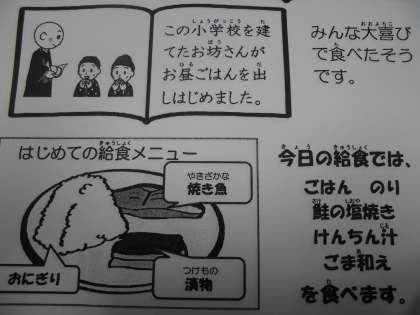 この小学校を建
てたお坊さんが
お昼ごはんを出
しはじめました。
みんな大喜び
で食べたそう
です。
はじめての給食メニュー
やきざかな
焼き魚
つけもの
漬物
おにぎり
今日の給食では、
ごはん のり
鮭の塩焼き
けんちん汁
ごま和え
を食べます。